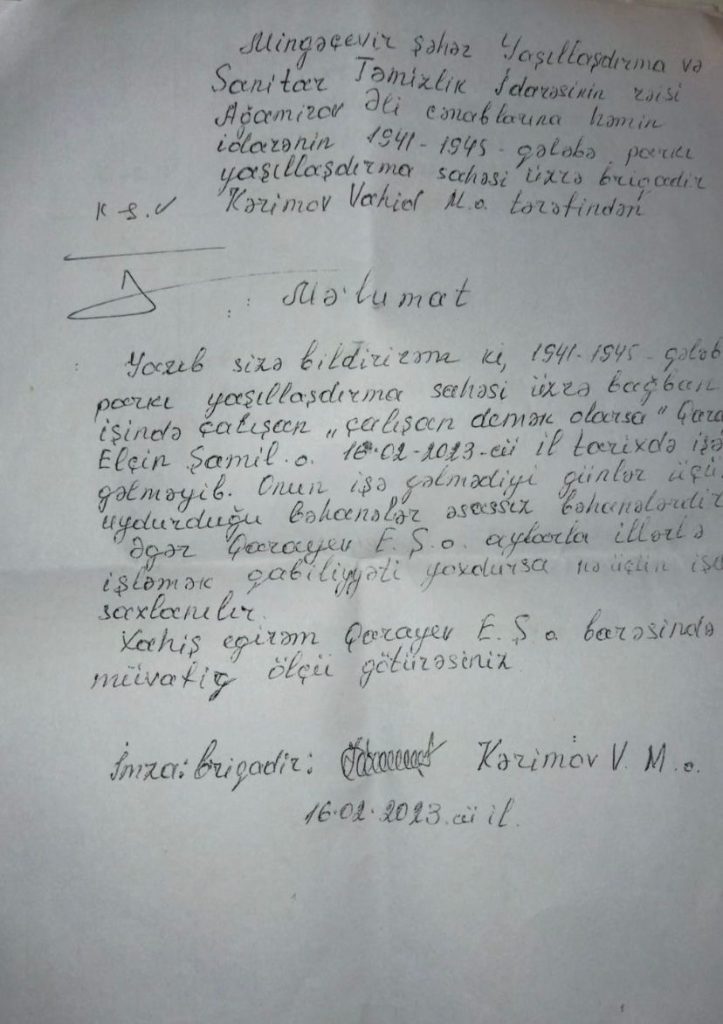 Mingəçevir şəhər Yaşıllaşdırma və
Sanitar Təmizlik İdarəsinin rəisi
Ağamirov Əli cənablarına həmin
idarənin 1941-1945-qələbə parkı
yaşıllaşdırma sahəsi üzrə briqadir
K.Ş.V Kərimov Vahid M.o. tərəfindən
: Mə'lumat
Yazıb sizə bildirirəm ki, 1941-1945-qələb
parkı yaşıllaşdırma sahəsi üzrə bağban
işində çalışan „çalışan demək olarsa" Qara
Elçin Şamil.o. 16.02-2023-cü il tarixdə işə
gəlməyib. Onun işə gəlmədiyi günlər üçü
uydurduğu bəhanələr əsassız bəhanələrdir
Əgər Qarayev E.Ş.o. aylarla illərlə
işləmək qabiliyyəti yoxdursa nə üçün işə
saxlanılır.
Xahiş edirəm Qarayev E.Ş o barəsində
müvafiq ölçü götürəsiniz
İmza: briqadir: Kərimov V. M.o.
16.02.2023.cü il.